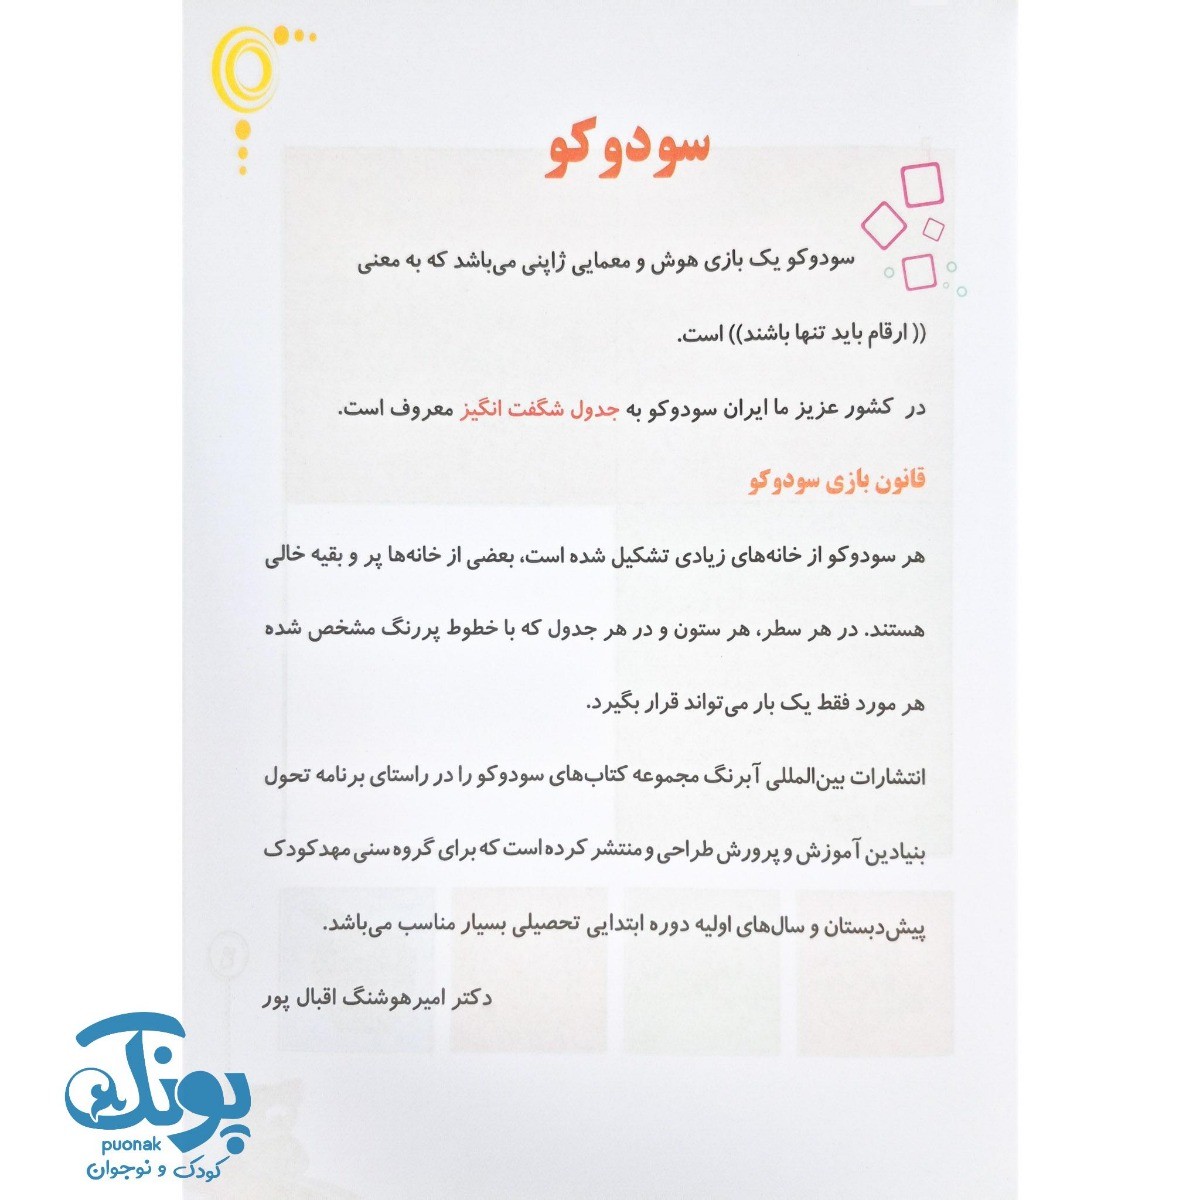 سودوکو
سودوکو یک بازی هوش و معمایی ژاپنی می‌باشد که به معنی
(( ارقام باید تنها باشند)) است.
در کشور عزیز ما ایران سودوکو به جدول شگفت انگیز معروف است.
قانون بازی سودوکو
هر سودوکو از خانه‌های زیادی تشکیل شده است، بعضی از خانه‌ها پر و بقیه خالی
هستند. در هر سطر، هر ستون و در هر جدول که با خطوط پررنگ مشخص شده
هر مورد فقط یک بار می‌تواند قرار بگیرد.
انتشارات بین‌المللی آبرنگ مجموعه کتاب‌های سودوکو را در راستای برنامه تحول
بنیادین آموزش و پرورش طراحی و منتشر کرده است که برای گروه سنی مهدکودک
پیش‌دبستان و سال‌های اولیه دوره ابتدایی تحصیلی بسیار مناسب می‌باشد.
دکتر امیرهوشنگ اقبال پور
پونک
puonak
کودک و نوجوان